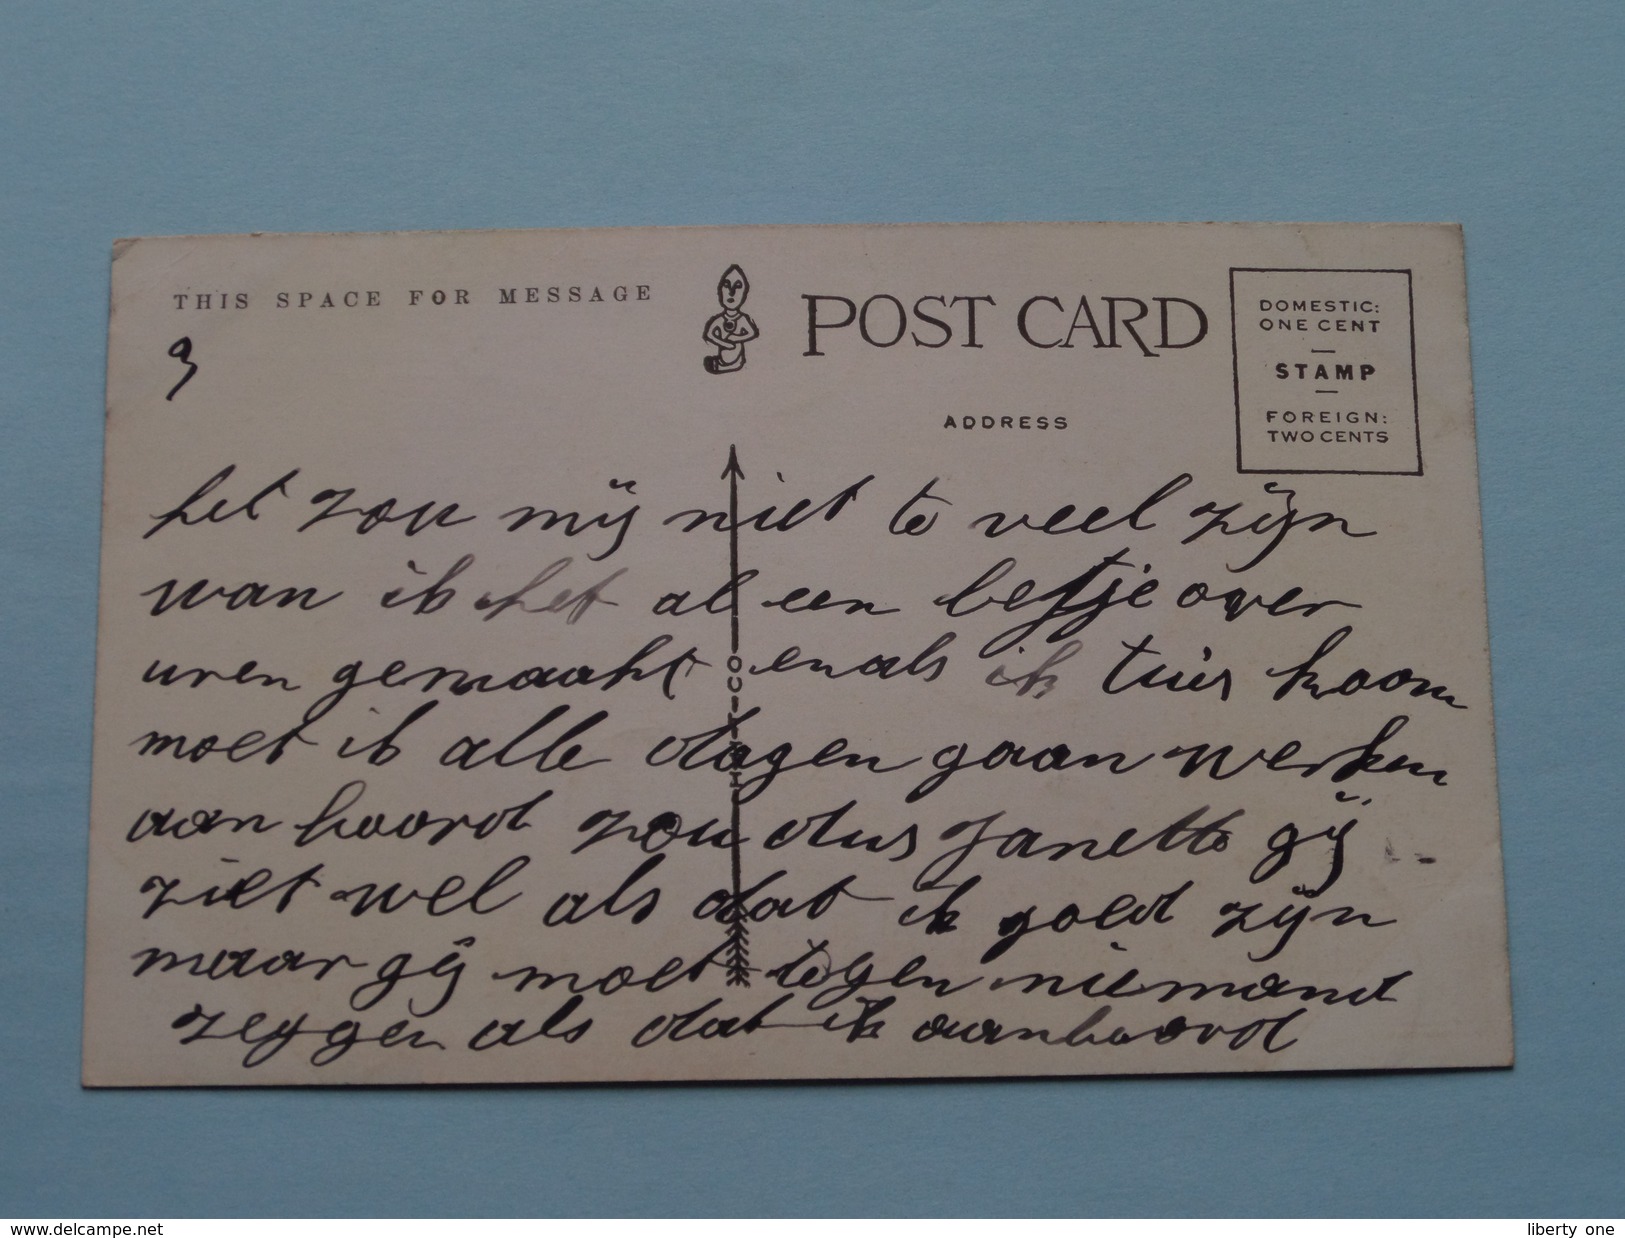 THIS SPACE FOR MESSAGE
POST CARD
DOMESTIC:
ONE CENT
STAMP
FOREIGN:
TWO CENTS
ADDRESS
9
het zou mij niet te veel zijn
wan ik hef al een betje over
uren gemaakt en als ik tuis koom
moet ik alle dagen gaan werken
aan boord zou dus Janette gij
ziet wel als dat ik goed zijn
maar gij moet tegen niemand
zeggen als dat ik aanboord
www.delcampe.net
liberty one